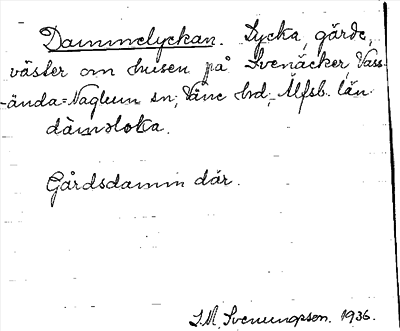 Dammelyckan. Lycka, gärde,
väster om husen på Svenäcker, Väss-
-ända-Naglum sn, Väne hd, Älfsb. län.
dàməloka.
Gårdsdamm där.
S.M. Svenungsson. 1936.